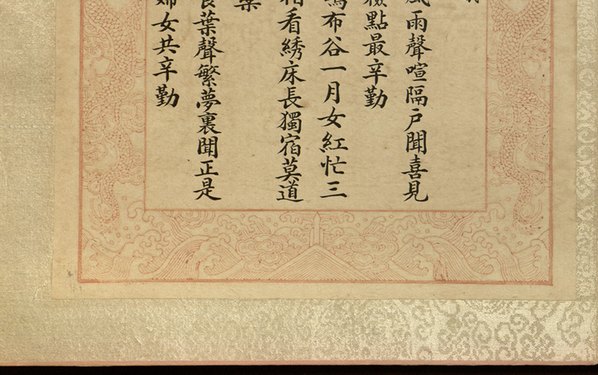 風雨聲喧隔戶聞喜見
檢點最辛勤
布谷一月女紅忙三
看綉床長獨宿莫道
葉聲繁夢裏聞正是
婦女共辛勤